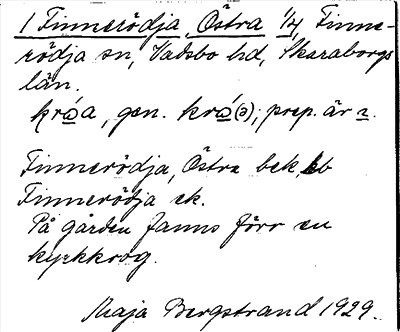 1 Finnerödja, Östra 1/4, Finne-
rödja sn, Vadsbo hd, Skaraborgs
län.
kròa, gen. kró(ə); prep. är
Finnerödja, Östra bek. kb
Finnerödja ek.
På gården fanns förr en
kyrkkrog.
Maja Bergstrand 1929.